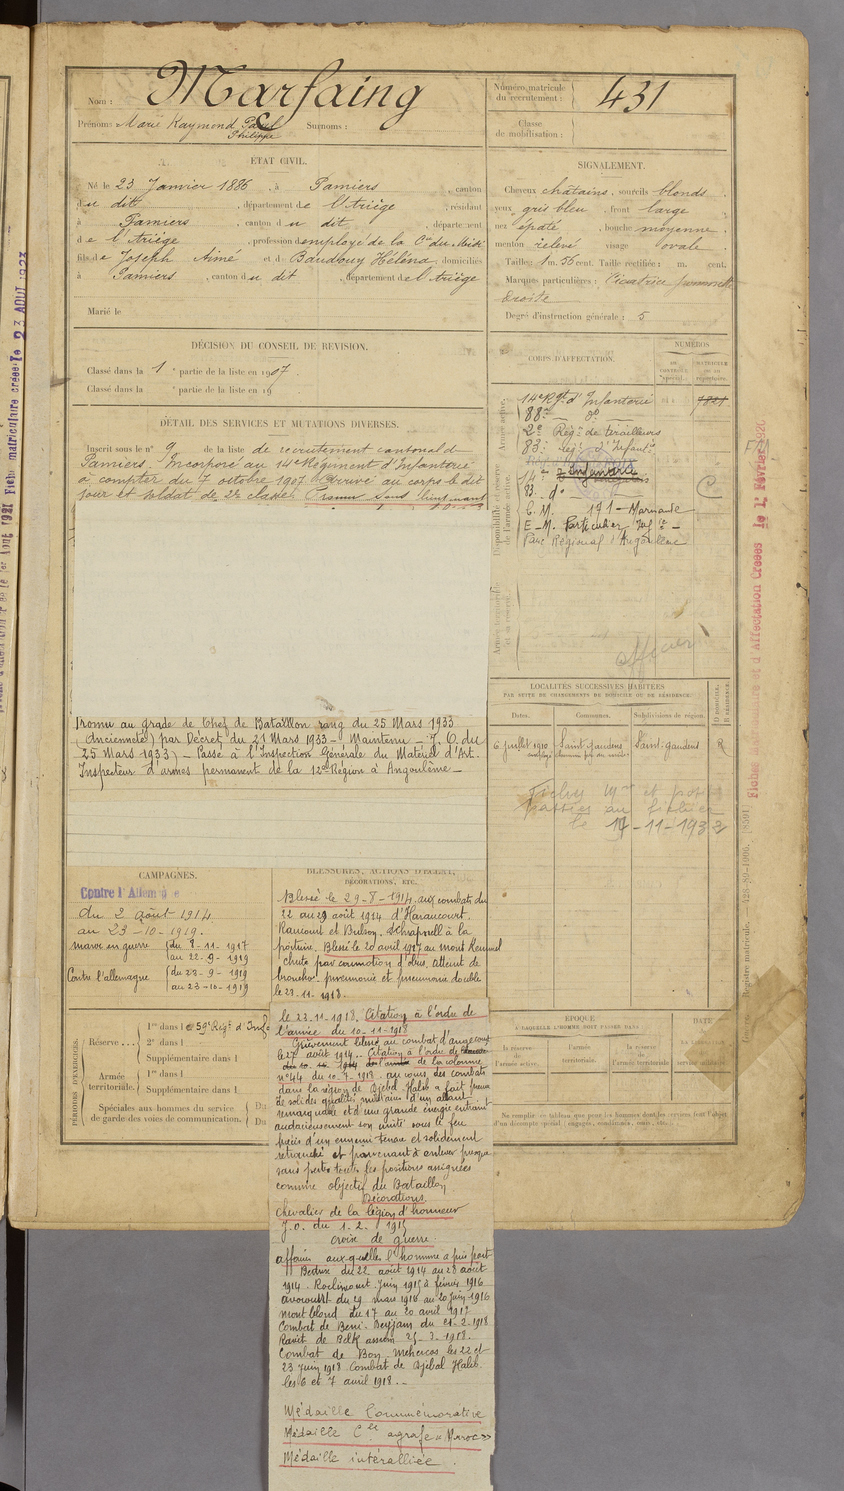 Nom : Marfaing
Prénoms : Marie Raymond Paul
Philippe
Surnoms :
Numéro matricule
du recrutement :
431
Classe
de mobilisation :
ÉTAT CIVIL.
Né le 23 Janvier 1886, à Pamiers, canton
du dit, département de l'Ariège, résidant
à Pamiers, canton du dit, département
de l'Ariège, profession d employé de la Cie du Midi
fils de Joseph Aimé et de Baudouy Héléna, domiciliés
à Pamiers, canton du dit, département de l'Ariège
Marié le
SIGNALEMENT.
Cheveux chatains, sourcils blonds,
yeux gris bleu, front large,
nez épaté, bouche moyenne,
menton relevé visage ovale.
Taille : 1 m. 56 cent. Taille rectifiée : m. cent.
Marques particulières : Cicatrice pommette
droite
Degré d'instruction générale : 5
DÉCISION DU CONSEIL DE REVISION.
Classé dans la 1 partie de la liste en 1907.
Classé dans la partie de la liste en 19
DÉTAIL DES SERVICES ET MUTATIONS DIVERSES.
Inscrit sous le n° 9 de la liste de recrutement cantonal de
Pamiers. Incorporé au 14e Régiment d'Infanterie
à compter du 7 octobre 1907. Arrivé au corps le dit
jour et soldat de 2e classe. Promu sous lieutenant
Promu au grade de Chef de Bataillon rang du 25 Mars 1933
(Ancienneté) par Décret du 21 Mars 1933 – Maintenu – J. O. du
25 Mars 1933) – Passé à l'Inspection Générale du Matériel d'Art.
Inspecteur d'armes permanent de la 12e Région à Angoulême –
CORPS D'AFFECTATION.
NUMÉROS
Armée active.
14e Rgt d'Infanterie
88e do
2e Régt de tirailleurs
83e Régt d'Infanterie
Disponibilité et réserve
de l'armée active.
83e do
C. M. 171 – Marmande
E – M. Particulier
Parc Régional d'Angoulême
Armée territoriale
et sa réserve.
officier
LOCALITÉS SUCCESSIVES HABITÉES
PAR SUITE DE CHANGEMENTS DE DOMICILE OU DE RÉSIDENCE.
Dates. Communes. Subdivisions de région. D DOMICILE. R RÉSIDENCE.
6 juillet 1910 Saint-gaudens Saint-gaudens R
passées au fichier
CAMPAGNES.
Contre l'Allemagne
du 2 août 1914
au 23-10-1919.
maroc en guerre du 8-11-1917
au 22-9-1919
Contre l'allemagne du 23-9-1919
au 23-10-1919
BLESSURES, ACTIONS D'ÉCLAT,
DÉCORATIONS, ETC.
Blessé le 29-8-1914 aux combats du
22 au 29 août 1914 d'Haraucourt.
Raucourt et Bulson. Schrapnell à la
poitrine. Blessé le 20 avril 1917 au mont Kemmel
chute par commotion d'obus. atteint de
broncho-pneumonie et pneumonie double
le 23-11-1918.
le 23.11.1918. Citation à l'ordre de
l'armée du 10-11-1918
Grièvement blessé au combat d'angecourt
le 27 août 1914. Citation à l'ordre de
de la colonne
n°44 du 10-7-1918. au cours des combats
dans la région de Djebel Halib a fait preuve
de solides qualités militaires d'un allant
remarquable et d'une grande énergie entrainant
audacieusement son unité sous le feu
précis d'un ennemi tenace et solidement
retranché et parvenant à enlever presque
sans perte toutes les positions assignées
comme objectif du Bataillon.
Décorations.
Chevalier de la légion d'honneur
J.O. du 1-2-1915
croix de guerre.
affaires auxquelles l'homme a pris part
du 22 août 1914 au 28 août
1914. Roclincourt Juin 1915 à février 1916
avocourt du 29 mars 1916 au 20 juin 1916
mont blond du 17 au 20 avril 1917
Combat de du 21-2-1918
Combat de Bou Mehercos les 22 et
23 Juin 1918 Combat de Djebal Halib
les 6 et 7 avril 1918.-
Médaille Commémorative
Médaille Cle agrafe "Maroc"
Médaille interalliée.
PÉRIODES D'EXERCICES.
Réserve ....
1re dans le 59e Régt d'Infie
2e dans l
Supplémentaire dans l
Armée
territoriale.
1re dans l
Supplémentaire dans l
Spéciales aux hommes du service
de garde des voies de communication.
Du
Du
ÉPOQUE
À LAQUELLE L'HOMME DOIT PASSER DANS :
la réserve
de
l'armée active.
l'armée
territoriale.
la réserve
de
l'armée territoriale
DATE
Ne remplir ce tableau que pour les hommes dont les services font l'objet
d'un décompte spécial (engagés, condamnés, omis, etc.
Fiche matriculaire créée le 23 AOUT 1923
et d'Affectation Créées le 1er Février 1926
Registre matricule. – 428-89-1906. [8591]